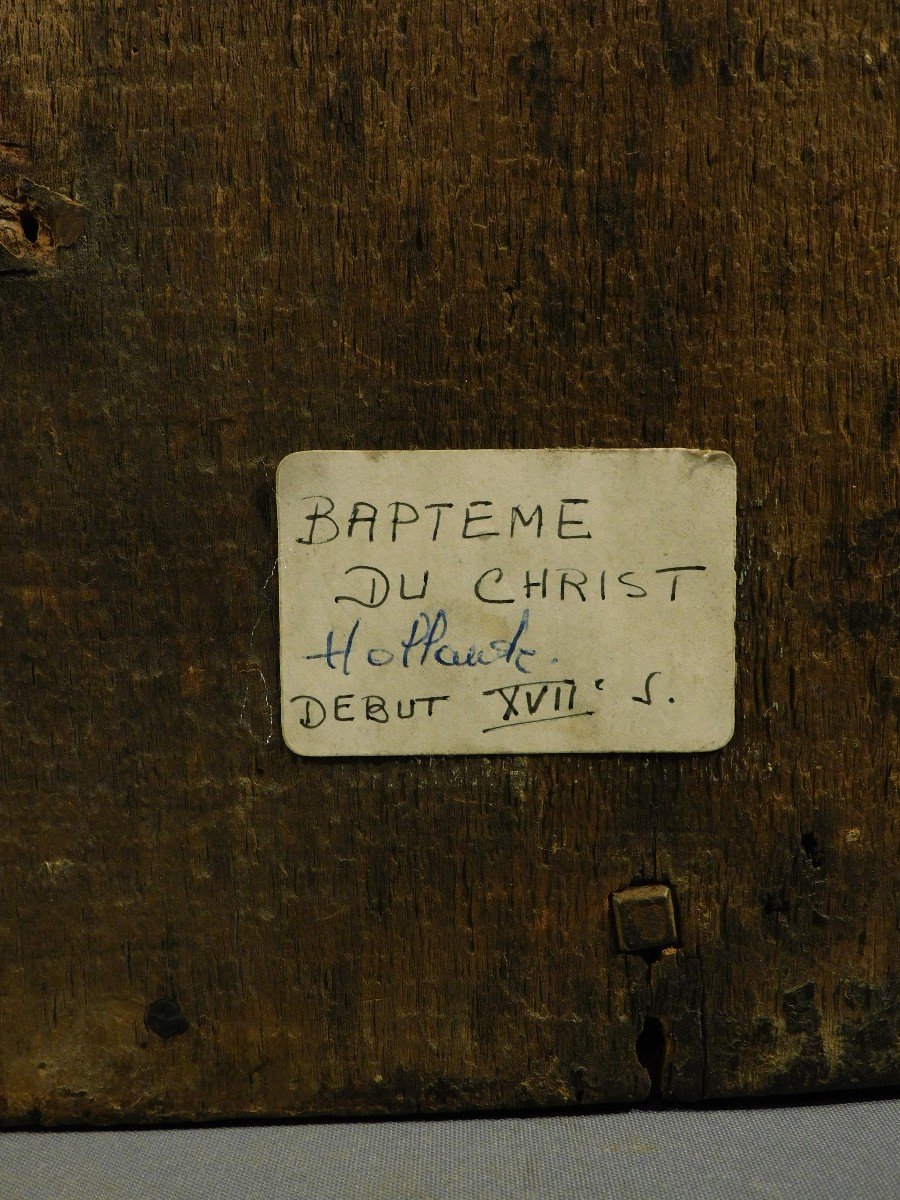 BAPTEME
DU CHRIST
Hollande.
DEBUT XVIIe S.